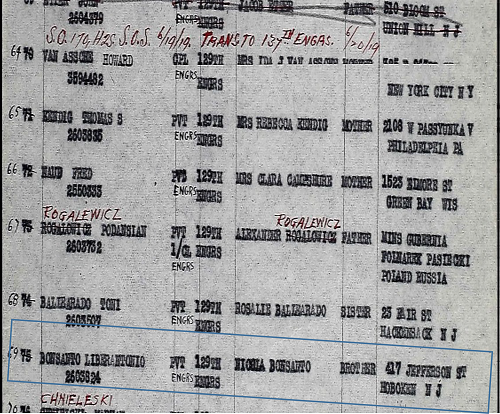 2604379 ENGRS ENGRS UNION HILL N J
S.O. 170, H2S. S.O.S. 6/19/19. TRANS TO 137TH ENGRS. 6/20/19
64 VAN ASSCHE HOWARD CPL 129TH MRS IDA J VAN ASSCHE MOTHER
ENGRS ENGRS NEW YORK CITY N Y
65 KENDIG THOMAS S PVT 129TH MRS REBECCA KENDIG MOTHER 2108 W PASSYUNK AV
2603835 ENGRS ENGRS PHILADELPHIA PA
66 FRED 129TH MRS CLARA MOTHER 1523 ELMORE ST
2550335 ENGRS ENGRS GREEN BAY WIS
ROGALEWICZ ROGALEWICZ
67 ROGALOWICZ PODANSIAN PVT 129TH ALEXANDER ROGALOWICZ FATHER MINS GUBERNIA
2603752 1/CL ENGRS POLNAREK PASIECKI
ENGRS POLAND RUSSIA
68 BALIEARADO TONI PVT 129TH ROSALIE BALIEARADO SISTER 23 FAIR ST
2603507 ENGRS ENGRS HACKENSACK N J
69 75 BONSANTO LIBERANTONIO PVT 129TH NICOLA BONSANTO BROTHER 417 JEFFERSON ST
2603824 ENGRS ENGRS HOBOKEN N J
CHMIELESKI
70